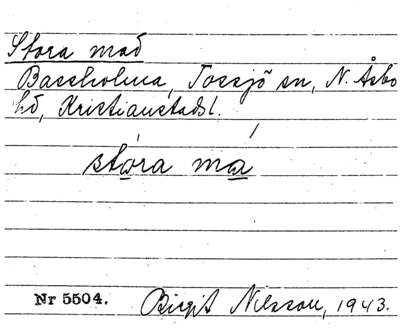 Stora mad
Bassholma, Tossjö sn, N. Åsbo
hd, Kristianstadsl.
stóra má
Nr 5504. Birgit Nilsson, 1943.